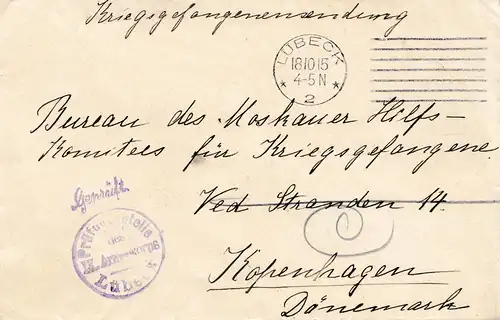 Kriegsgefangenensendung
LÜBECK
18.10.15
4-5 N
* 2 *
Bureau des Moskauer Hilfs-
Komitees für Kriegsgefangene
Geprüft.
Ved Stranden 14.
Prüfungsstelle
des
IX Armeekorps
Lübeck
Kopenhagen
Dänemark